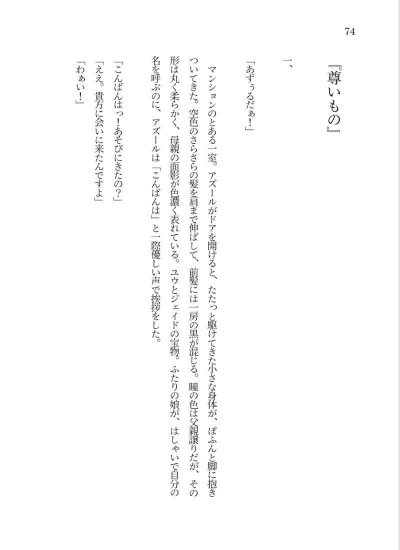 74
『尊いもの』
一、
「あずぅるだぁ！」
マンションのとある一室。アズールがドアを開けると、たたっと駆けてきた小さな身体が、ぱふんと脚に抱き
ついてきた。空色のさらさらの髪を肩まで伸ばして、前髪には一房の黒が混じる。瞳の色は父親譲りだが、その
形は丸く柔らかく、母親の面影が色濃く表れている。ユウとジェイドの宝物。ふたりの娘が、はしゃいで自分の
名を呼ぶのに、アズールは「こんばんは」と一際優しい声で挨拶をした。
「こんばんはっ！あそびにきたの？」
「ええ。貴方に会いに来たんですよ」
「わぁい！」